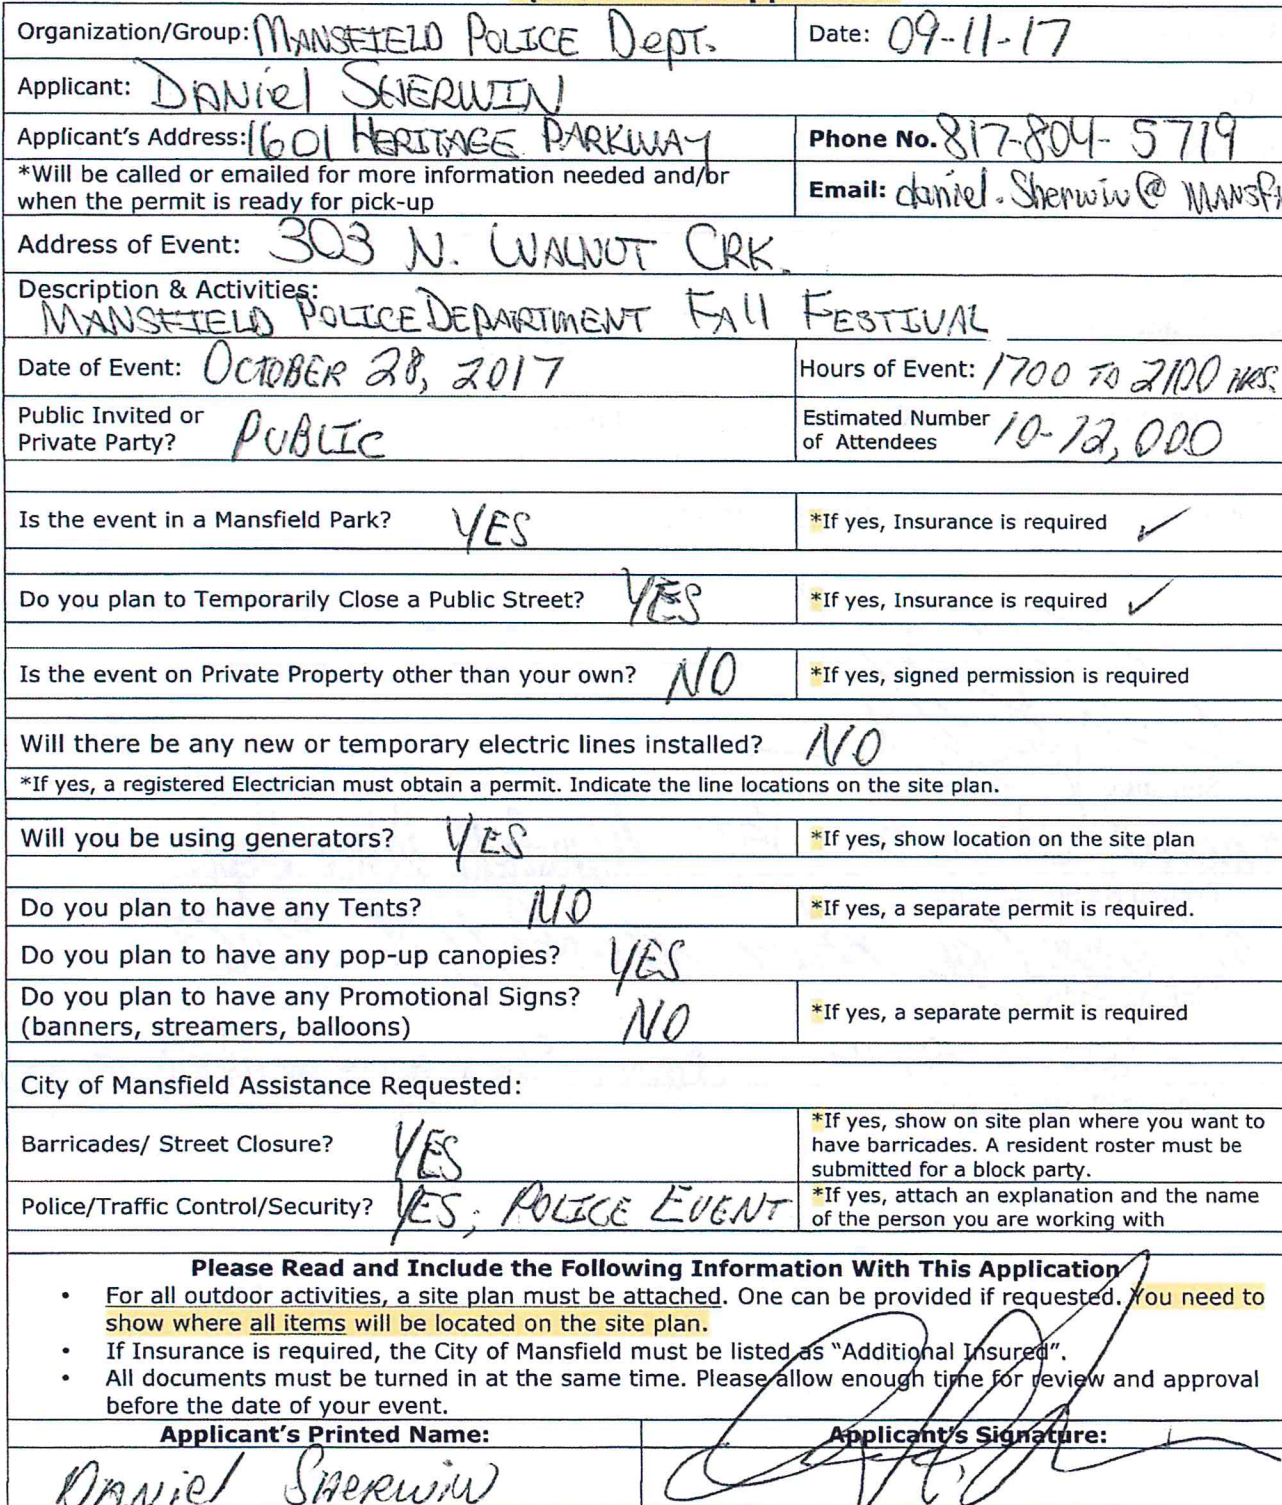 Organization/Group: MANSFIELD POLICE DEPT. Date: 09-11-17
Applicant: DANIEL SHERWIN
Applicant's Address: 1601 HERITAGE PARKWAY Phone No. 817-804-5719
*Will be called or emailed for more information needed and/or
when the permit is ready for pick-up Email: daniel.Sherwin@
Address of Event: 303 N. WALNUT CRK.
Description & Activities:
MANSFIELD POLICE DEPARTMENT FALL FESTIVAL
Date of Event: OCTOBER 28, 2017 Hours of Event: 1700 TO 2100 HRS.
Public Invited or
Private Party? PUBLIC
Estimated Number
of Attendees 10-12,000
Is the event in a Mansfield Park? YES *If yes, Insurance is required ✓
Do you plan to Temporarily Close a Public Street? YES *If yes, Insurance is required ✓
Is the event on Private Property other than your own? NO *If yes, signed permission is required
Will there be any new or temporary electric lines installed? NO
*If yes, a registered Electrician must obtain a permit. Indicate the line locations on the site plan.
Will you be using generators? YES *If yes, show location on the site plan
Do you plan to have any Tents? NO *If yes, a separate permit is required.
Do you plan to have any pop-up canopies? YES
Do you plan to have any Promotional Signs?
(banners, streamers, balloons) NO *If yes, a separate permit is required
City of Mansfield Assistance Requested:
Barricades/ Street Closure? YES
*If yes, show on site plan where you want to
have barricades. A resident roster must be
submitted for a block party.
Police/Traffic Control/Security? YES, POLICE EVENT
*If yes, attach an explanation and the name
of the person you are working with
Please Read and Include the Following Information With This Application
• For all outdoor activities, a site plan must be attached. One can be provided if requested. You need to
show where all items will be located on the site plan.
• If Insurance is required, the City of Mansfield must be listed as “Additional Insured”.
• All documents must be turned in at the same time. Please allow enough time for review and approval
before the date of your event.
Applicant's Printed Name: Applicant's Signature:
DANIEL SHERWIN